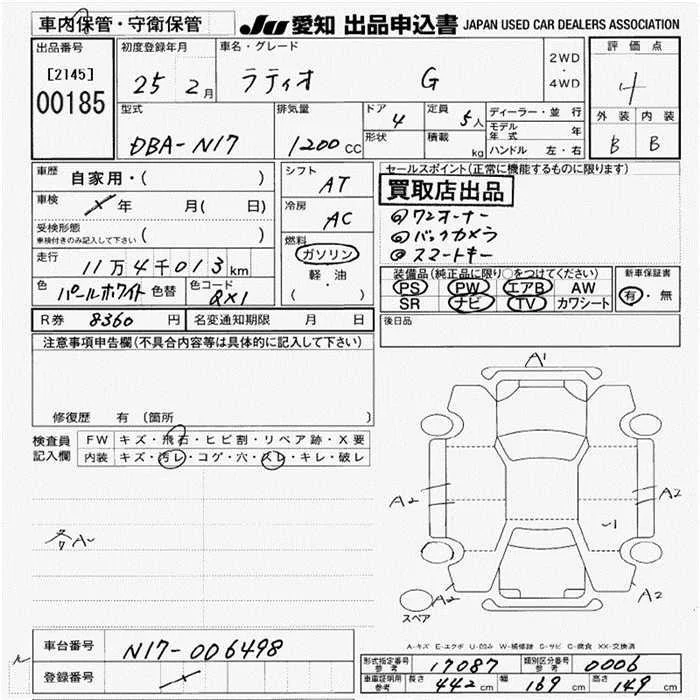 車内保管・守衛保管
JU 愛知 出品申込書 JAPAN USED CAR DEALERS ASSOCIATION
出品番号
[2145]
00185
初度登録年月
25 2月
車名・グレード
ラティオ G
2WD
・
4WD
評価点
4
外装 内装
B B
型式
DBA-N17
排気量
1200 CC
ドア
4
形状
定員
5人
積載
kg
ディーラー・並行
モデル年式 年
ハンドル 左・右
車歴 自家用・( )
車検 年 月( 日)
受検形態
車検付きのみ記入して下さい ( )
走行
11万4千013km
色 パールホワイト 色替
色コード QX1
シフト
AT
冷房
AC
燃料
ガソリン
軽・油
( )
セールスポイント(正常に機能するものに限ります)
買取店出品
①ワンオーナー
②バックカメラ
③スマートキー
装備品(純正品に限り〇をつけてください)
PS PW エアB AW
SR ナビ TV カワシート
新車保証書
有・無
R券 8360 円 名変通知期限 月 日
後日品
注意事項申告欄(不具合内容等は具体的に記入して下さい)
修復歴 有 〔箇所 〕
検査員
記入欄
FW キズ・飛石・ヒビ割・リペア跡・X要
内装 キズ・汚レ・コゲ・穴・スレ・キレ・破レ
各A-
A1
A2
A2
A2
A2
スペア
A-キズ E-エクボ U-凹み W-補修跡 S-サビ C-腐食 XX-交換済
車台番号 N17-006498
登録番号
形式指定番号
参考
17087
類別区分番号
参考
0006
車庫証明用
参考
長さ 442 cm 幅 169 cm 高さ 149 cm